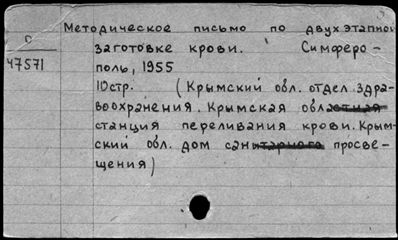 Методическое письмо по двухэтапной
D
заготовке крови. Симферо-
47571
поль, 1955
10стр. (Крымский обл. отдел здра-
воохранения. Крымская област­ная
станция переливания крови. Крым-
ский обл. дом санитарного просве-
щения)